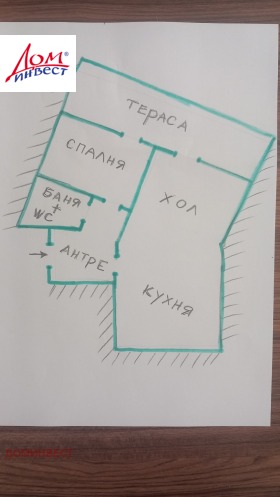 Дом®
ИНВЕСТ
ТЕРАСА
СПАЛНЯ
ХОЛ
БАНЯ
+
WC
АНТРЕ
КУХНЯ